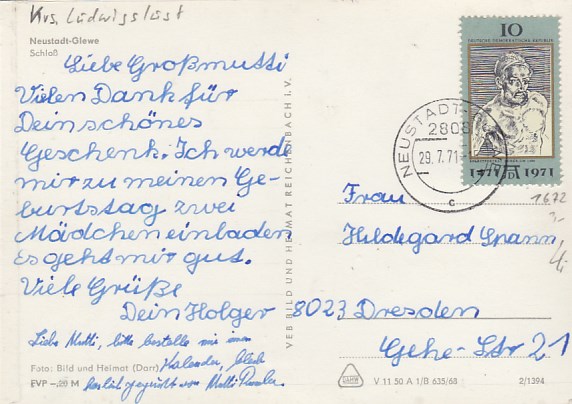 Krs. Ludwigslust
Neustadt-Glewe
Schloß
Liebe Großmutti
Vielen Dank für
Dein schönes
Geschenk. Ich werd
mir zu meinen Ge-
burtstag zwei
Mädchen einbaden
Es geht mir gut.
Viele Grüße
Dein Holger
Liebe Mutti, bitte bestelle mir einen
Kalender,
herzlich gegrüßt von Mutti
Foto: Bild und Heimat (Darr)
EVP –,20 M
VEB BILD UND HEIMAT REICHENBACH I. V.
10
DEUTSCHE DEMOKRATISCHE REPUBLIK
1471 1971
NEUSTADT-
2808
29.7.71
c
Frau
Hildegard Spann
8023 Dresden
Gehe-Str 21
1672
3,-
4,
V 11 50 A 1/B 635/68
2/1394